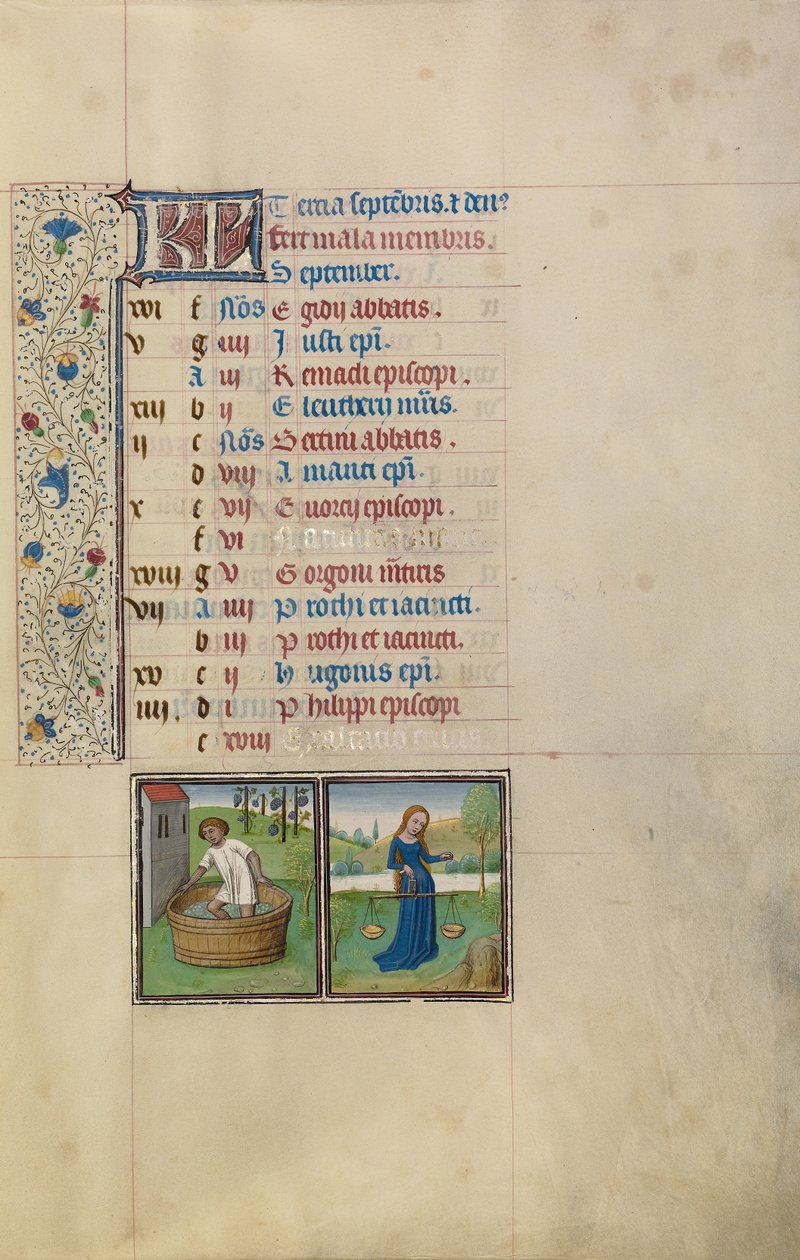 KL Tercia septe͂bris. & den?
fert mala membris.
September.
xvi f No͂s Egidij abbatis.
v g iiij Justi epi͂.
A iij Remacli episcopi.
xiij b ij Eleutherij mr͂is.
ij c No͂s Bertini abbatis.
d viij Amanti epi͂.
x e vij Evorcij episcopi.
f vi
xviij g v Gorgoni m͂tiris
vij A iiij Prothi et iacincti.
b iij Prothi et iacincti.
xv c ij Hugonis epi͂.
iiij. d i Philippi episcopi
e xviij Exaltacio crucis